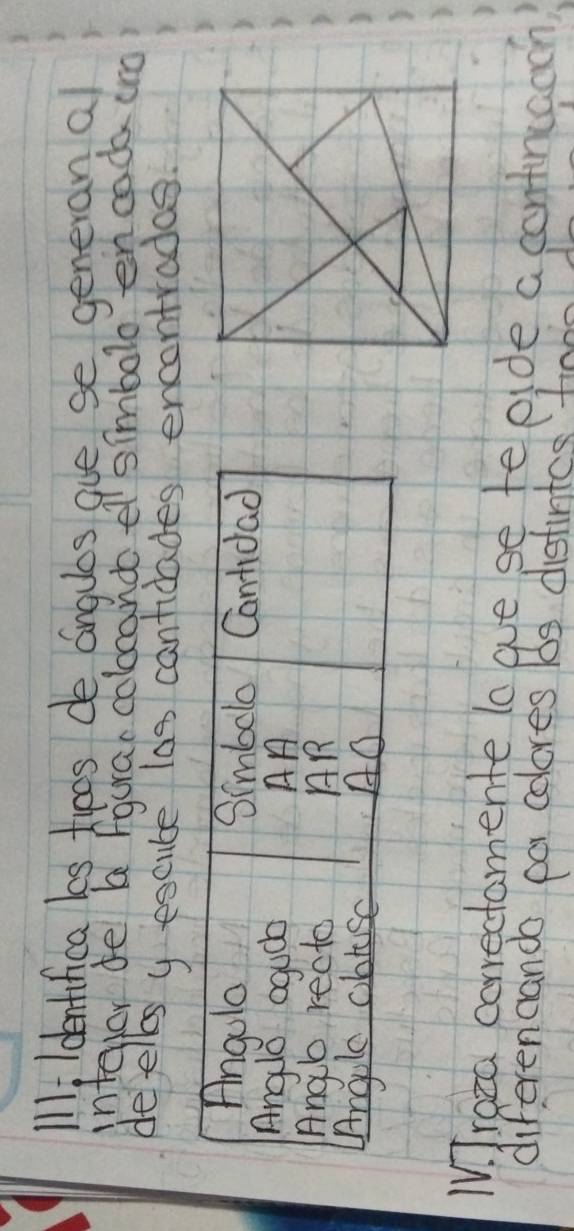 III.- Identifica los tipos de ángulos que se generan al
interior de la figura, colocando el símbolo en cada uno
de ellos y escribe las cantidades encontradas.
Angulo Símbolo Cantidad
Angulo agudo AA
Angulo recto AR
Angulo obtuso AO
IV. Traza correctamente lo que se te pide a continuación,
diferenciando por colores los distintos tipos de